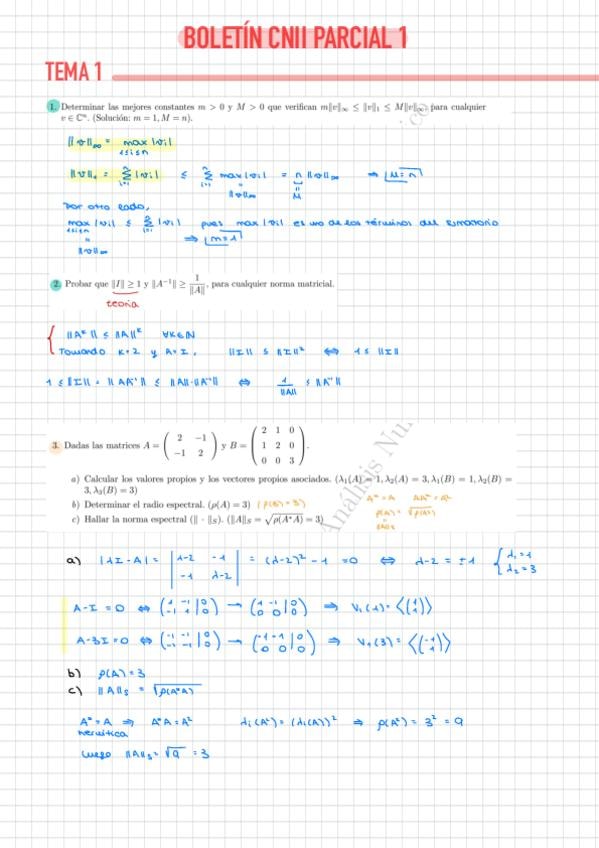 BOLETÍN CNII PARCIAL 1
TEMA 1
1. Determinar las mejores constantes m > 0 y M > 0 que verifican m‖v‖∞ ≤ ‖v‖₁ ≤ M‖v‖∞, para cualquier
v ∈ ℂⁿ. (Solución: m = 1, M = n).
‖v‖∞ = max |vi|
1≤i≤n
‖v‖₁ = Σ |vi| ≤ Σ max |vi| = n ‖v‖∞ ⇒ M = n
‖v‖∞ M
Por otro lado,
max |vi| ≤ Σ |vi| pues max |vi| es uno de los términos del sumatorio
1≤i≤n
‖v‖∞ ⇒ m = 1
2. Probar que ‖I‖ ≥ 1 y ‖A⁻¹‖ ≥ 1/‖A‖, para cualquier norma matricial.
teoría
‖Aᵏ‖ ≤ ‖A‖ᵏ ∀k∈ℕ
Tomando k=2 y A=I, ‖I‖ ≤ ‖I‖² ⇔ 1 ≤ ‖I‖
1 ≤ ‖I‖ = ‖AA⁻¹‖ ≤ ‖A‖·‖A⁻¹‖ ⇔ 1/‖A‖ ≤ ‖A⁻¹‖
3. Dadas las matrices A = ( 2 −1 ; −1 2 ) y B = ( 2 1 0 ; 1 2 0 ; 0 0 3 ).
a) Calcular los valores propios y los vectores propios asociados. (λ₁(A) = 1, λ₂(A) = 3, λ₁(B) = 1, λ₂(B) =
3, λ₃(B) = 3)
b) Determinar el radio espectral. (ρ(A) = 3) (ρ(B) = 3) A* = A AA* = A²
c) Hallar la norma espectral (‖·‖S). (‖A‖S = √ρ(A*A) = 3) ρ(A) = √ρ(A²)
‖A‖S
Análisis Nu
a) |λI − A| = | λ−2 1 ; 1 λ−2 | = (λ−2)² − 1 = 0 ⇔ λ−2 = ±1 { λ₁=1
λ₂=3
A−I = 0 ⇔ ( 1 −1 | 0 ; −1 1 | 0 ) → ( 1 −1 | 0 ; 0 0 | 0 ) ⇒ V₁(1) = ⟨(1 ; 1)⟩
A−3I = 0 ⇔ ( −1 −1 | 0 ; −1 −1 | 0 ) → ( −1 −1 | 0 ; 0 0 | 0 ) ⇒ V₁(3) = ⟨(−1 ; 1)⟩
b) ρ(A) = 3
c) ‖A‖S = √ρ(A*A)
A* = A ⇒ A*A = A² λi(A²) = (λi(A))² ⇒ ρ(A²) = 3² = 9
hermítica
Luego ‖A‖S = √9 = 3